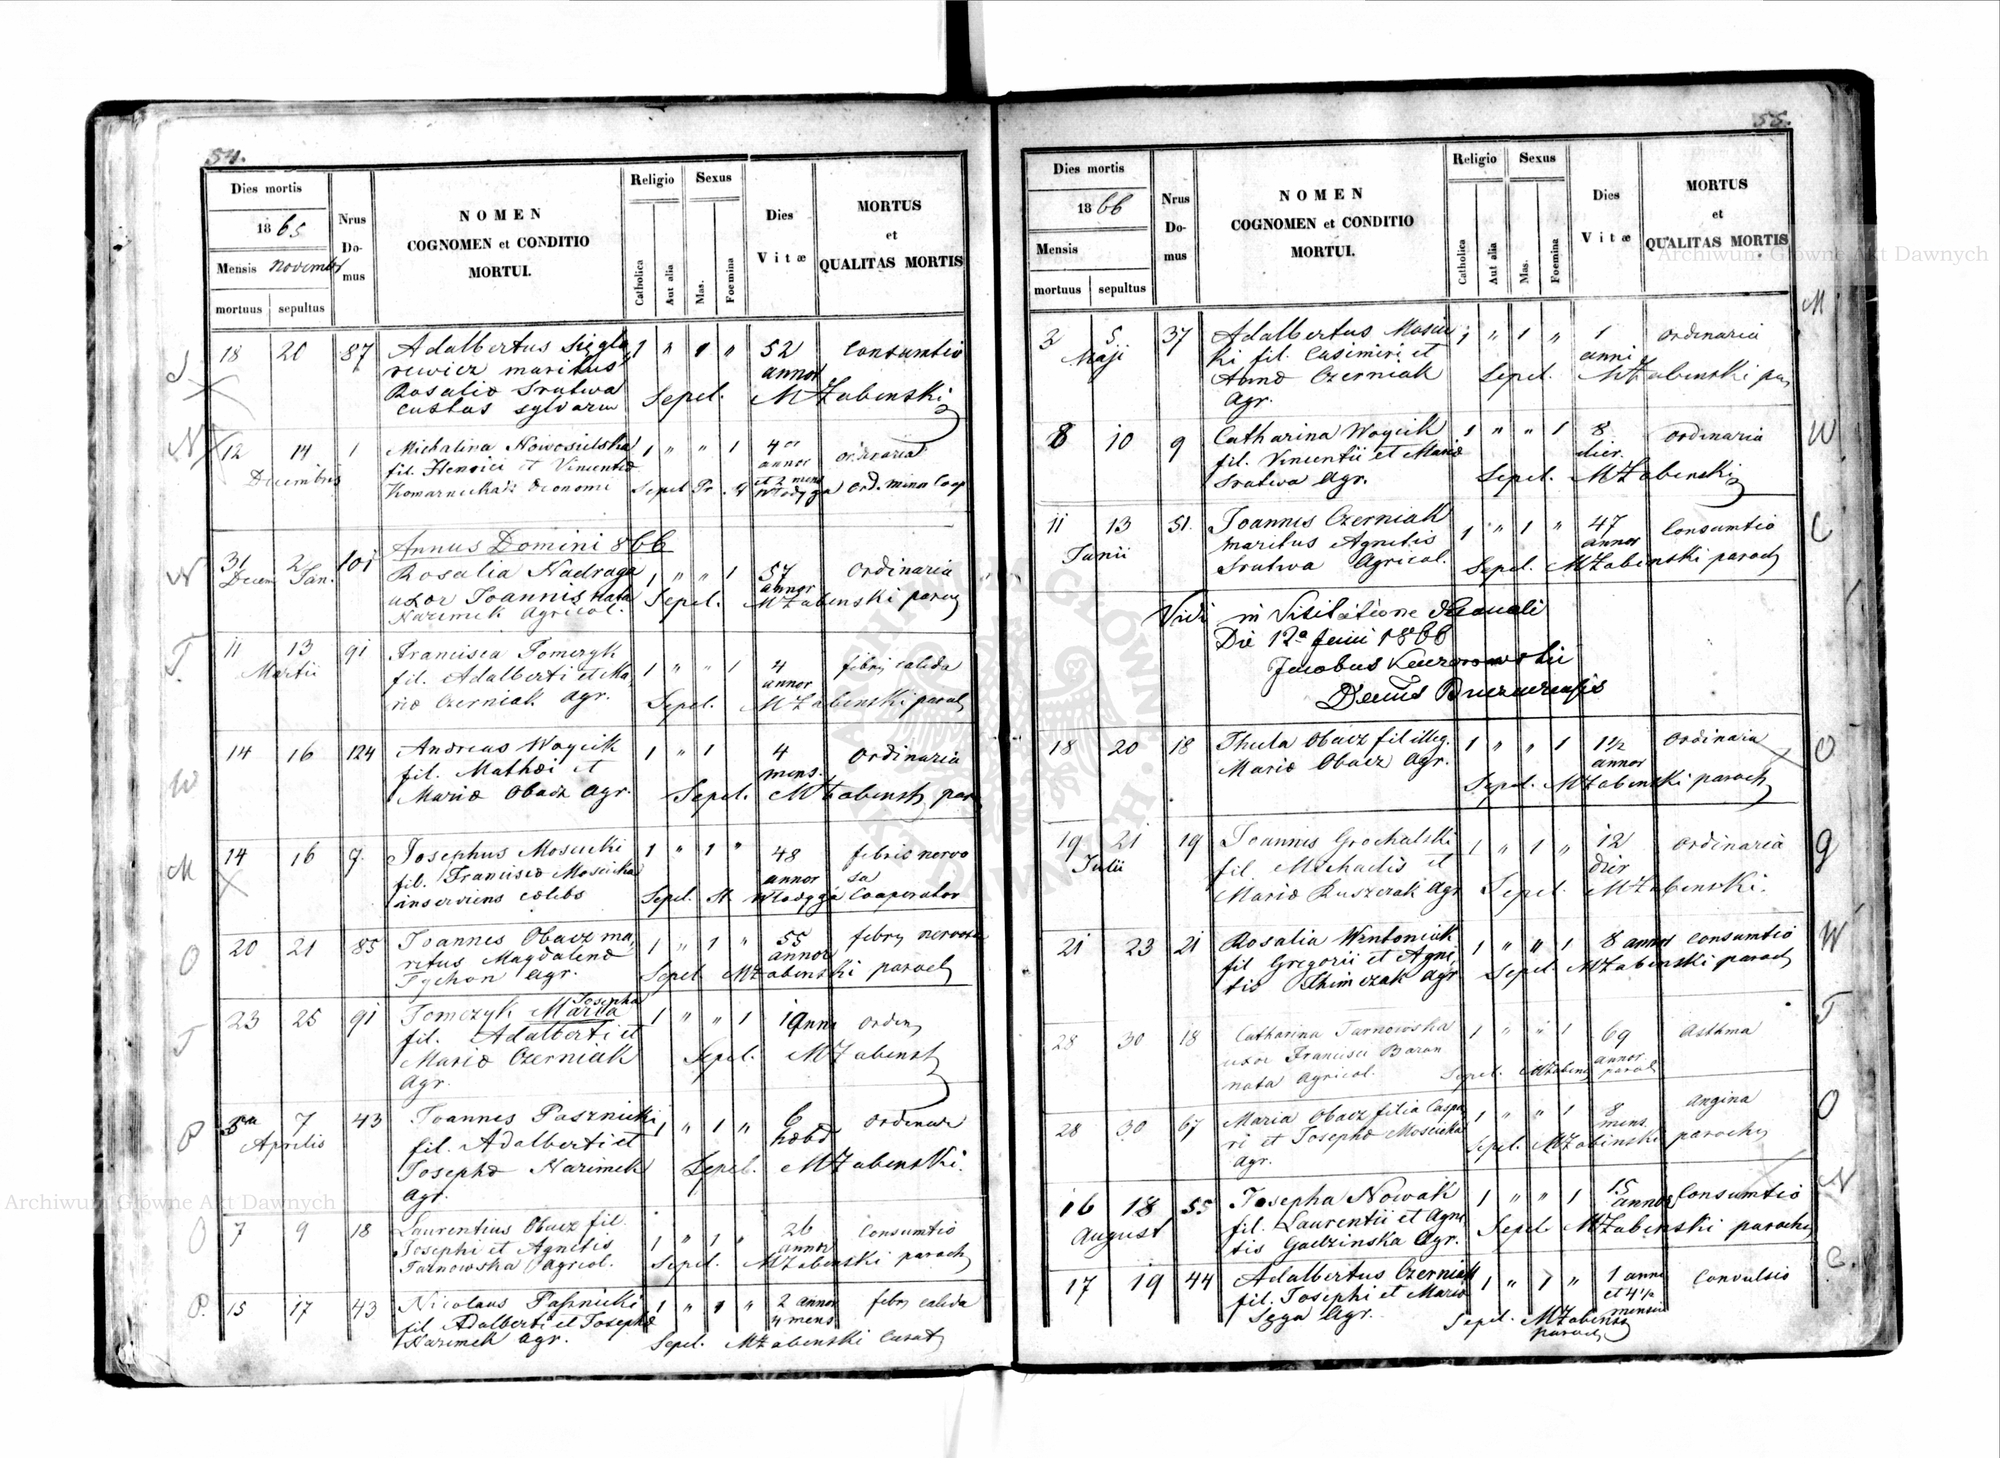 54.
Dies mortis
1865
Mensis Novembr
mortuus sepultus
Nrus Do- mus
NOMEN
COGNOMEN et CONDITIO
MORTUI.
Religio
Catholica
Aut alia
Sexus
Mas.
Foemina
Dies
Vitæ
MORTUS
et
QUALITAS MORTIS
18 20 87 Adalbertus 1 " 1 " 52 Consumtio
rewicz maritus annor
Rosaliæ Sratwa Sepel. MZabenski
custos sylvarum
12 14 1 Michalina Nowosielska 1 " " 1 4 ordinaria
Decembris fil. Henrici et Vincentiæ annor
et 2 mens
Komarnicka Oeconomi Sepel. Włodyga Coop
Annus Domini 866
31 2 101 Rosalia Nadraga 1 " " 1 57 Ordinaria
Decem Jan. uxor Joannis nata annor
Sepel. MZabenski paroch
Kazimek Agricol.
11 13 91 Francisca Tomczyk 1 " " 1 4 febris calida
Martii fil. Adalberti et Ma annor
riæ Czerniak Agr. Sepel. MZabenski paroch
14 16 124 Andreas Woycik 1 " 1 4 Ordinaria
fil. Mathæi et mens.
Mariæ Obacz Agr. Sepel. MZabensk par
14 16 9. Josephus Moscicki 1 " 1 " 48 febris nervo
fil. Franciscæ Moscicka annor sa
inserviens cœlebs Sepel. St. Włodyga Cooperator
20 21 85 Joannes Obacz ma 1 " 1 " 55 febris nervosa
ritus Magdalenæ annor
Tychon Agr. Sepel. MZabenski paroch
Josepha
23 25 91 Tomczyk Maria 1 " " 1 1 anni orden
fil. Adalberti et
Mariæ Czerniak Sepel. MZabensk
Agr.
5 7 43 Joannes Pasznicki 1 " 1 " 6 Ordinar
Aprilis fil. Adalberti et hebd
Josephæ Kazimek Sepel. MZabenski.
Agr.
7 9 18 Laurentius Obacz fil. 1 " 1 " 26 Consumtio
Josephi et Agnetis annor
Tarnowska Agricol. Sepel. MZabenski paroch
15 17 43 Nicolaus Pasznicki 1 " 1 " 2 annor febris calida
fil Adalberti et Josephæ 4 mens
Kazimek Agr. Sepel. MZabenski Curat
55.
Dies mortis
1866
Mensis
mortuus sepultus
Nrus Do- mus
NOMEN
COGNOMEN et CONDITIO
MORTUI.
Religio
Catholica
Aut alia
Sexus
Mas.
Foemina
Dies
Vitæ
MORTUS
et
QUALITAS MORTIS
3 5 37 Adalbertus Moscic 1 " 1 " 1 Ordinaria
Maji ki fil. Casimiri et anni
Annæ Czerniak Sepel. MZabenski par
Agr.
8 10 9 Catharina Woycik 1 " " 1 8 Ordinaria
fil. Vincentii et Mariæ dier.
Sratwa Agr. Sepel. MZabenski
11 13 51. Joannes Czerniak 1 " 1 " 47 Consumtio
Junii maritus Agnetis annor
Sratwa Agricol. Sepel. MZabenski paroch
Vidi in Visitatione decanali
Die 12a Junii 1866
Jacobus
Decanus
18 20 18 Thecla Obacz fil illeg. 1 " " 1 1½ Ordinaria
Mariæ Obacz Agr. annor
Sepel. MZabenski paroch
19 21 19 Joannes Grochalski 1 " 1 " 12 Ordinaria
Julii fil. Michaelis et dier
Mariæ Ruszczak Agr Sepel. MZabenski.
21 23 21 Rosalia Wintoniak 1 " " 1 8 annor Consumtio
fil Gregorii et Agne
tis Klimczak Agr Sepel MZabenski paroch
28 30 18 Catharina Tarnowska 1 " " 1 69 Asthma
uxor Francisci Baran annor
nata Agricol. Sepel. MZabens paroch
28 30 67 Maria Obacz filia Caspa 1 " " 1 8 Angina
ri et Josephæ Moscicka mens.
Agr. Sepel. MZabinski parochus
16 18 55 Josepha Nowak 1 " " 1 15 Consumtio
August fil. Laurentii et Agne annor
tis Gadzinska Agr. Sepel MZabenski parochus
17 19 44 Adalbertus Czerniak 1 " 1 " 1 anni Convulsio
fil. Josephi et Mariæ et 4½
Sega Agr. Sepel. MZabenski mensium
paroch
Archiwum Główne Akt Dawnych
Archiwum Główne Akt Dawnych